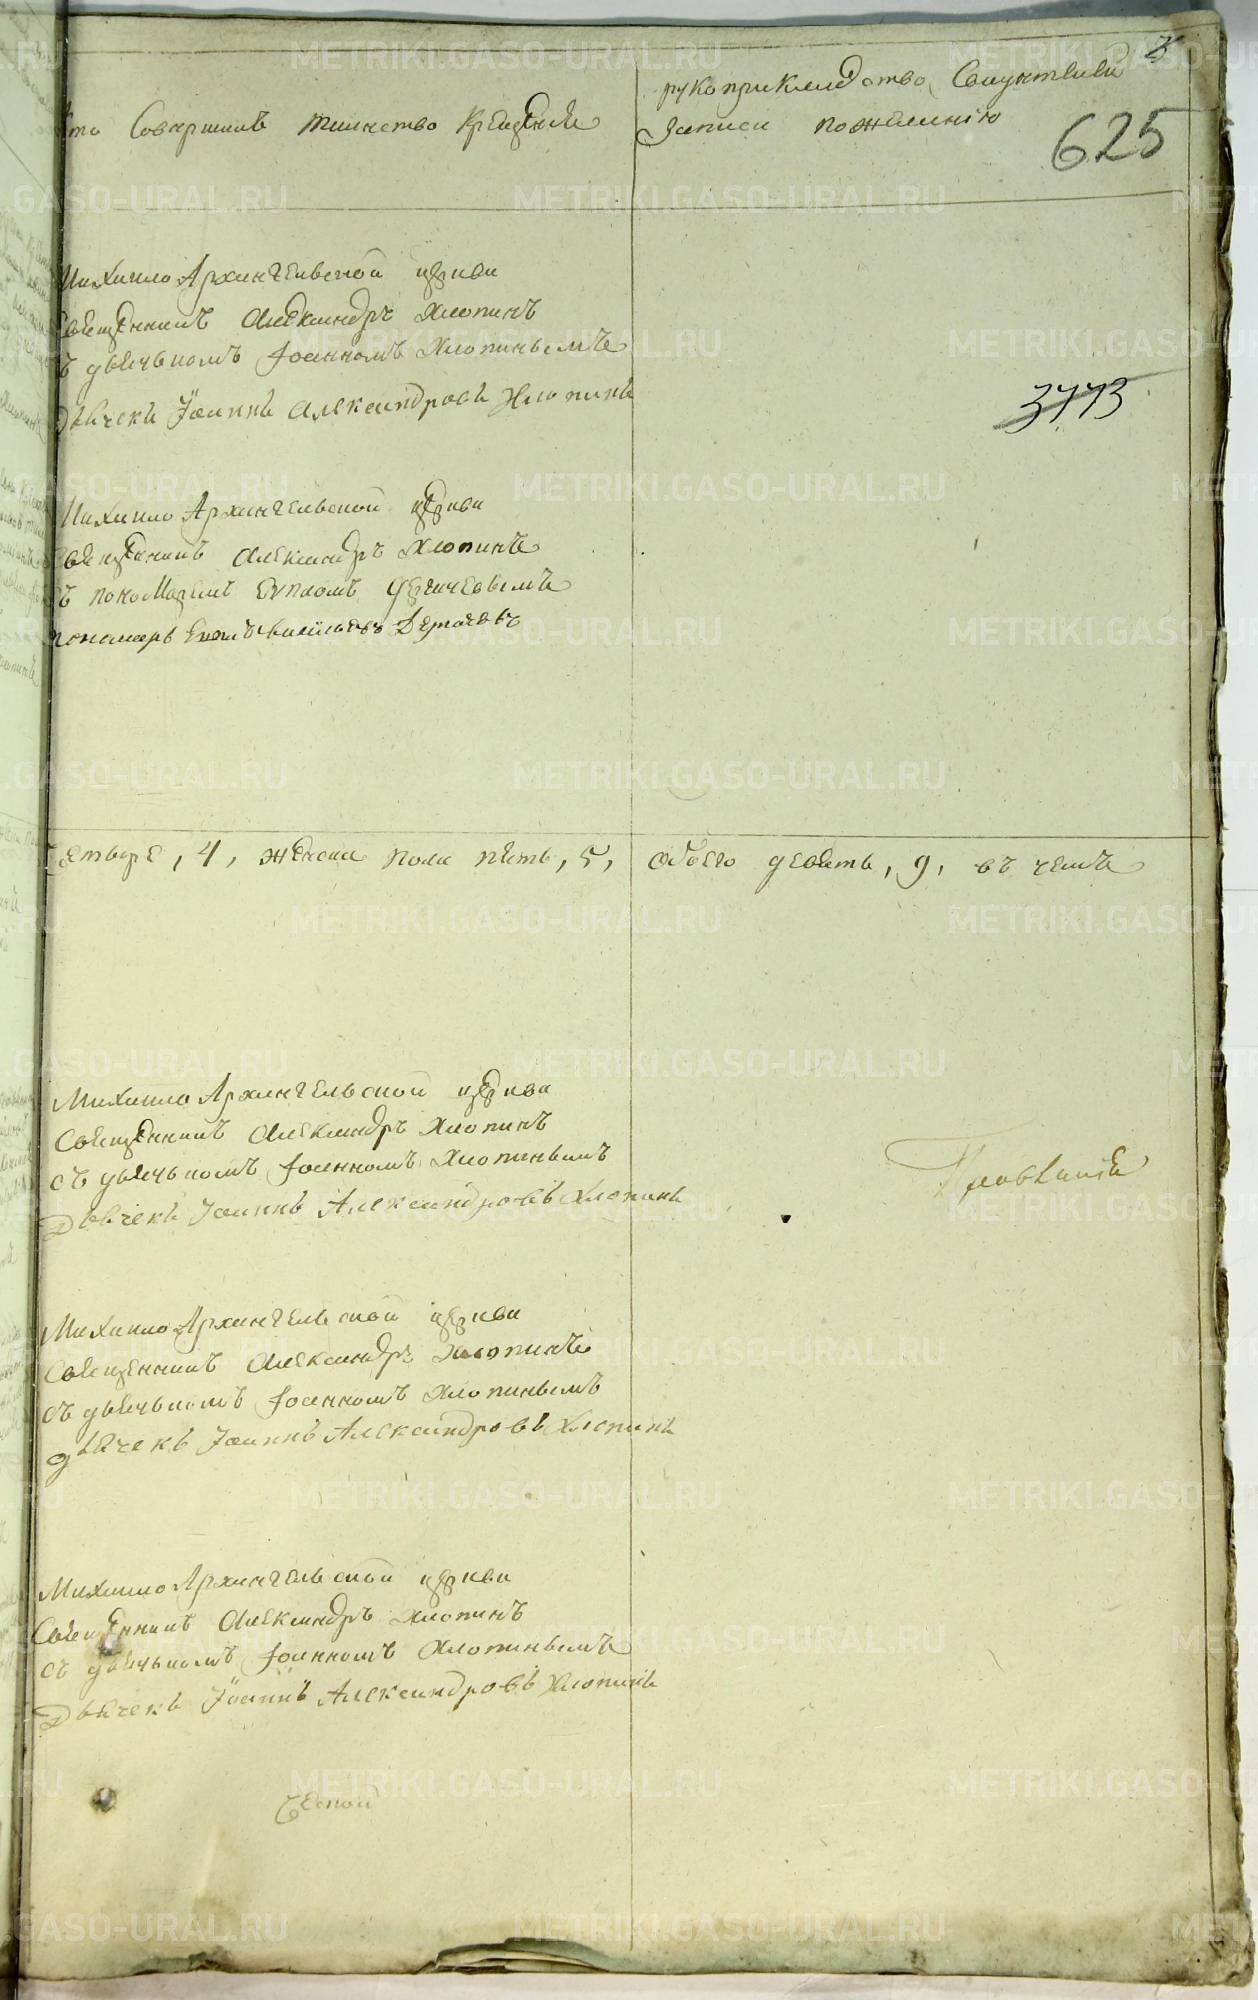 Кто Совершилъ таинство Крещения
рукоприкладство Свидетелей
записи по желанию
625
Михаило Архангельской церкви
Священникъ Александръ Хлопинъ
съ дьячькомъ Іоанномъ Хлопинымъ
Дьячекъ Іоаннъ Александровъ Хлопинъ
3773
Михаило Архангельской церкви
Священникъ Александръ Хлопинъ
съ пономаремъ Евпломъ Дегтчевымъ
пономарь Евплъ Васильевъ
четыре, 4, женска пола пять, 5, обоего девять, 9, въ чемъ
Михаило Архангельской церкви
Священникъ Александръ Хлопинъ
съ дьячькомъ Іоанномъ Хлопинымъ
Дьячекъ Іоаннъ Александровъ Хлопинъ
Михаило Архангельской церкви
Священникъ Александръ Хлопинъ
съ дьячькомъ Іоанномъ Хлопинымъ
дьячекъ Іоаннъ Александровъ Хлопинъ
Михаило Архангельской церкви
Священникъ Александръ Хлопинъ
съ дьячькомъ Іоанномъ Хлопинымъ
Дьячекъ Іоаннъ Александровъ Хлопинъ
METRIKI.GASO-URAL.RU